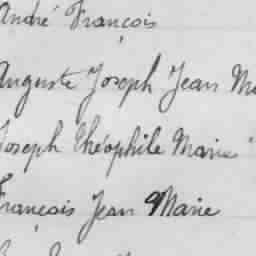 André François
Auguste Joseph Jean
Joseph Théophile Marie
François Jean Marie